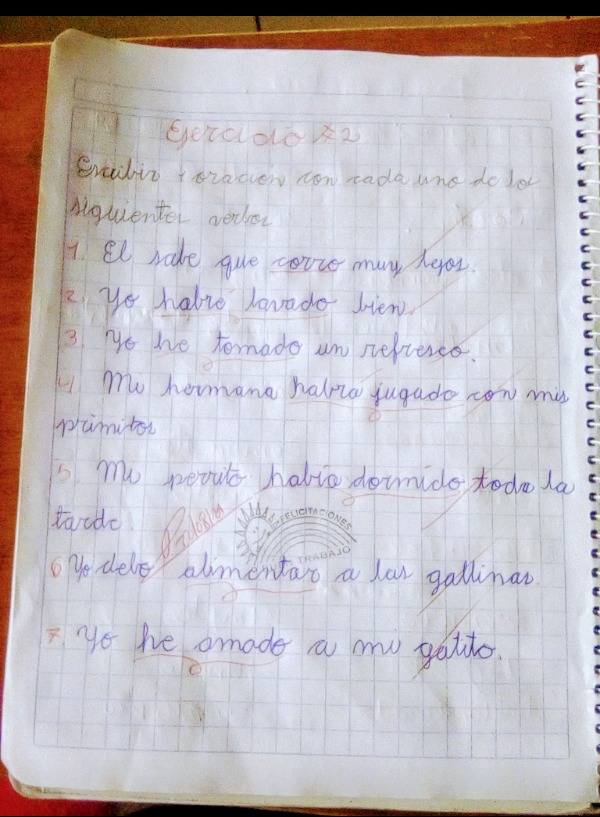 Ejercicio #2
Escribir 1 oración con cada uno de los
siguientes verbos
1. El sabe que corro muy lejos.
2. Yo habré lavado bien.
3. Yo he tomado un refresco.
4 Mi hermana habrá jugado con mis
primitos
5. Mi perrito había dormido toda la
tarde.
FELICITACIONES
TRABAJO
6 Yo debo alimentar a las gallinas.
7. Yo he amado a mi gatito.